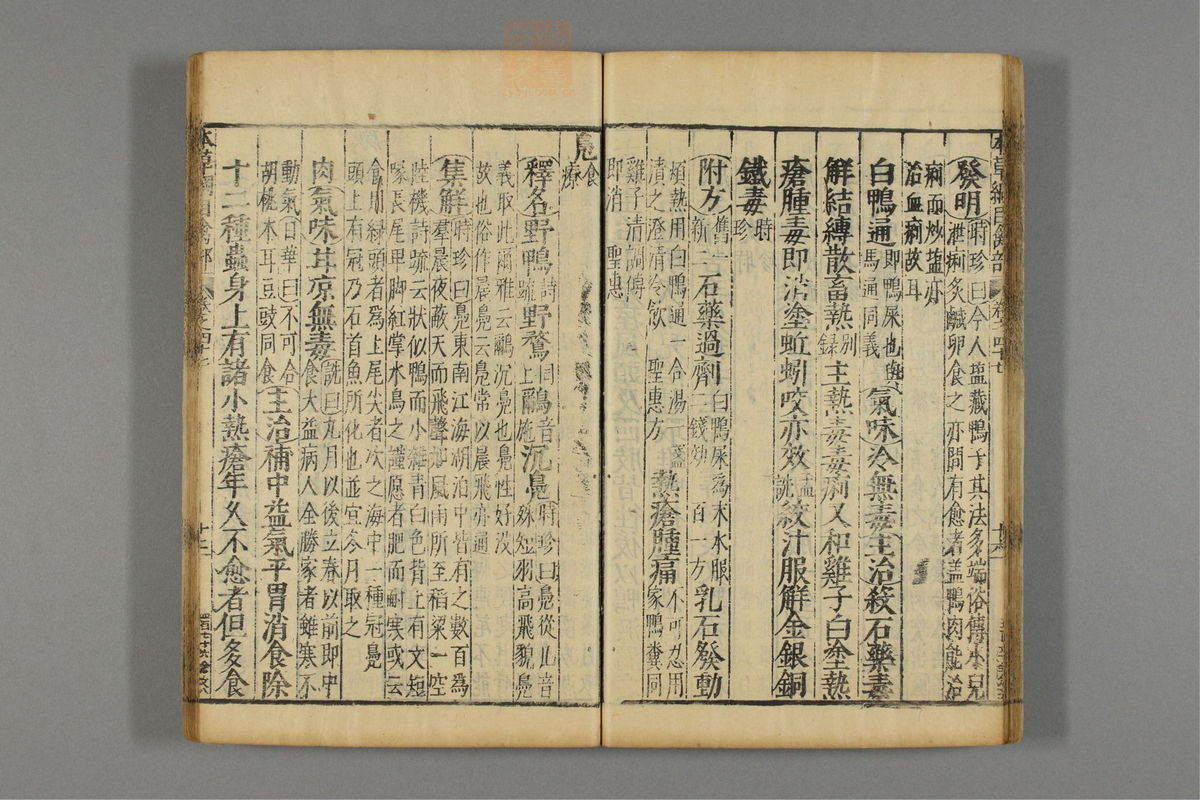 發明時珍曰今人鹽藏鴨子其法多端俗傳小兒
泄痢炙鹹卵食之亦間有愈者蓋鴨肉能治
痢而炒鹽亦
治血痢故耳
白鴨通即鴨屎也與
馬通同義氣味冷無毒主治殺石藥毒
解結縛散畜熱別
錄主熱毒毒痢又和雞子白塗熱
瘡腫毒即消塗蚯蚓咬亦效孟
詵絞汁服解金銀銅
鐵毒時
珍
附方舊一
新三石藥過劑白鴨屎為末水服
二錢效 百一方乳石發動
煩熱用白鴨通一合湯一盞
漬之澄清冷飲 聖惠方熱瘡腫痛不可忍用
家鴨糞同
雞子清調傅
即消 聖惠
鳧食
療
釋名野鴨詩
疏野鶩同
上鸍音
施沉鳧時珍曰鳧從几音
殊短羽高飛貌鳧
義取此爾雅云鸍沉鳧也鳧性好沒
故也俗作晨鳧云鳧常以晨飛亦通
集解時珍曰鳧東南江海湖泊中皆有之數百為
羣晨夜蔽天而飛聲如風雨所至稻粱一空
陸機詩疏云狀似鴨而小雜青白色背上有文短
喙長尾卑腳紅掌水鳥之謹愿者肥而耐寒或云
食用綠頭者為上尾尖者次之海中一種冠鳧
頭上有冠乃石首魚所化也並宜冬月取之
肉氣味甘凉無毒詵曰九月以後立春以前即中
食大益病人全勝家者雖寒不
動氣日華曰不可合
胡桃木耳豆豉同食主治補中益氣平胃消食除
十二種蟲身上有諸小熱瘡年久不愈者但多食